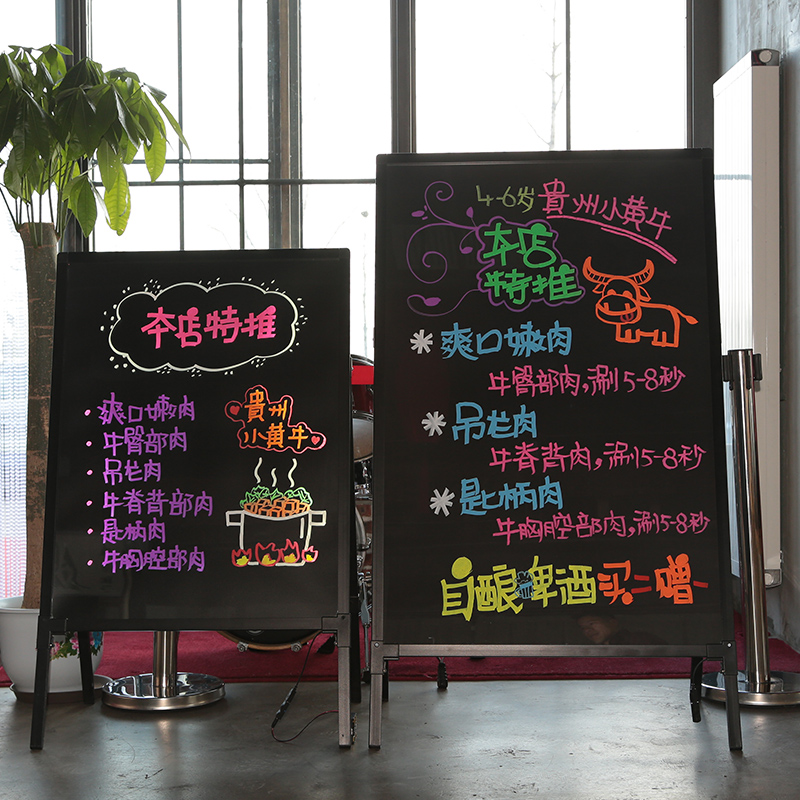 本店特推
· 爽口嫩肉
· 牛臀部肉
· 吊龙肉
· 牛脊背部肉
· 匙柄肉
· 牛胸腔部肉
貴州
小黄牛
4-6岁貴州小黄牛
本店
特推
* 爽口嫩肉
牛臀部肉,涮5-8秒
* 吊龙肉
牛脊背肉,涮5-8秒
* 匙柄肉
牛胸腔部肉,涮5-8秒
自酿啤酒买二赠一